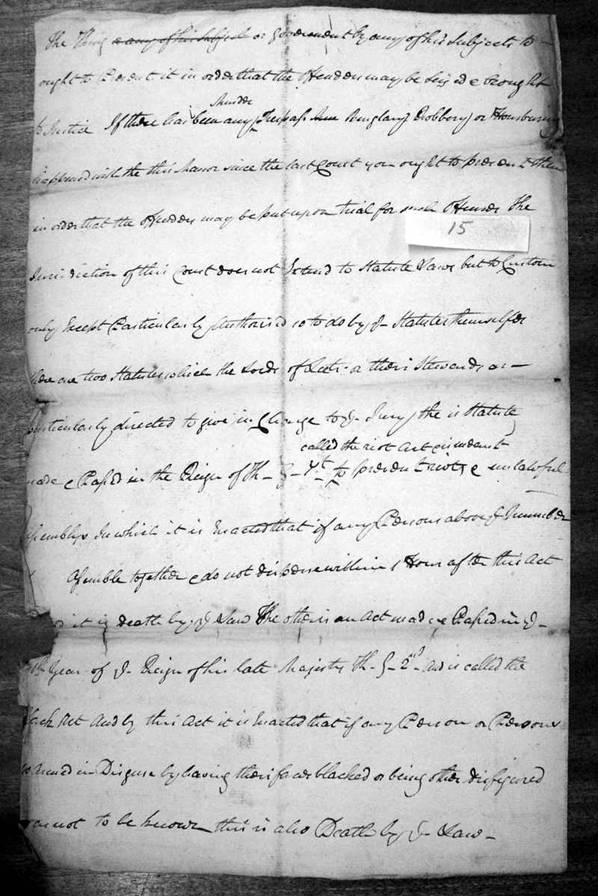 The King or any of his Subjects or Goverment by any of his Subjects to
ought to Present it in order that the Offender may be seized & brought
Murder
to Justice If there has been any Trespass Burglary Robbery or Housburning
happened with the this Manor since the last Court you ought to present them
in order that the Offender may be put upon trial for such Offences The
15
Jurisdiction of this Court does not Extend to Statute Laws but to Custom
only Except Particularly Authorised so to do by ye Statutes themselfes
there are two Statutes which the Lords of Leets or their Stewards are
particularly directed to give in Charge to ye Jury the is Statute
called the riot Act is meant
made & Pass'd in the Reign of Kg G 1st to prevent riots & unlawful
Assemblys In which it is Enacted that if any Persons above ye Number
Assemble together & do not disperse within 1 Hour after this Act
it is death by ye Law The other is an Act made & Passed in ye
Year of ye Reign of his late Majesty Kg G 2d & is called the
Black Act And by this Act it is Enacted that if any Person or Persons
Armed in Disguise by having their faces blacked or being other disfigured
as not to be known this is also Death by ye Law